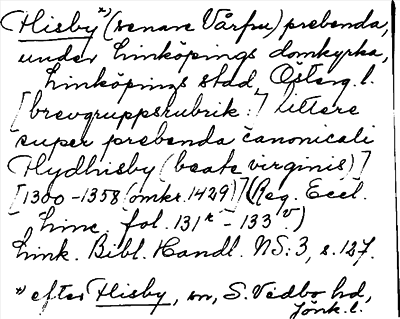 Hisby*) (senare Vårfru) prebenda,
under Linköpings domkyrka,
Linköpings stad, Österg. l.
[brevgruppsrubrik:] littere
super prebenda canonicali
Hydhisby (beate virginis)]
[1300-1358 (omkr. 1429)] (Reg. Eccl.
Linc. fol. 131r - 133v)
Link. Bibl. Handl. NS:3, s. 127.
*) efter Hisby, sn, S. Vedbo hd,
Jönk. l.